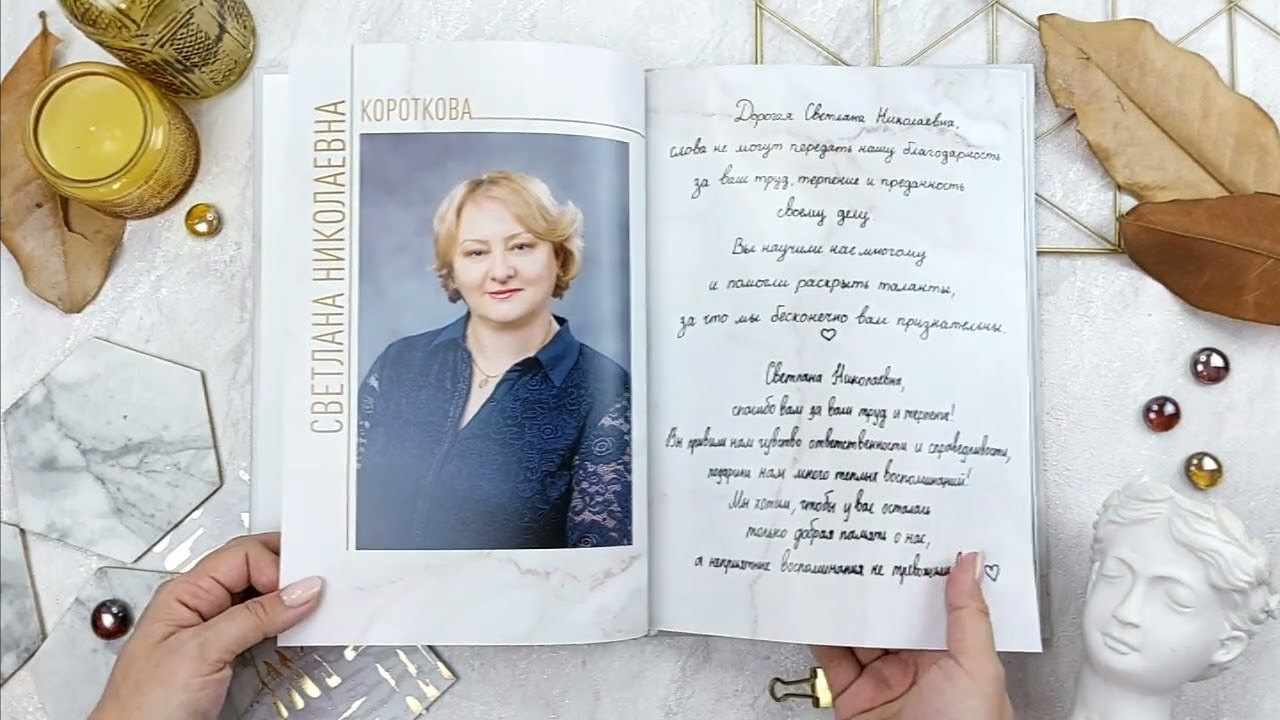 СВЕТЛАНА НИКОЛАЕВНА
КОРОТКОВА
Дорогая Светлана Николаевна,
слова не могут передать нашу благодарность
за ваш труд, терпение и преданность
своему делу.
Вы научили нас многому
и помогли раскрыть таланты,
за что мы бесконечно вам признательны.
Светлана Николаевна,
спасибо вам за ваш труд и терпение!
Вы привили нам чувство ответственности и справедливости,
подарили нам много теплых воспоминаний!
Мы хотим, чтобы у вас остались
только добрая память о нас,
а неприятные воспоминания не